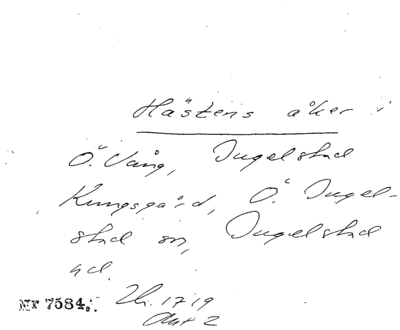 Hästens åker i
Ö. Vång, Ingelstad
Kungsgård, Ö. Ingel-
stad sn, Ingelstad
hd.
Nr 7584.
Lh. 1719
Akt 2